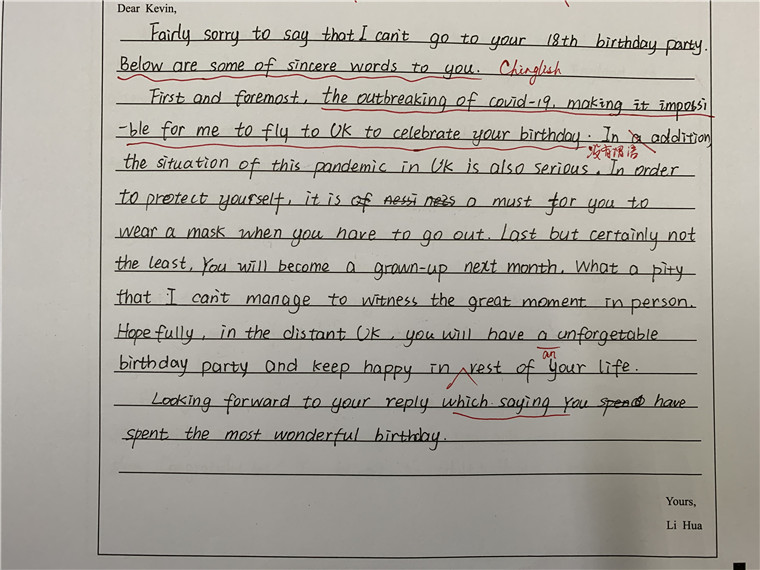 Dear Kevin,
Fairly sorry to say that I can't go to your 18th birthday party.
Below are some of sincere words to you. Chinglish
First and foremost, the outbreaking of covid-19, making it impossi
-ble for me to fly to UK to celebrate your birthday. In a addition,
没有谓语
the situation of this pandemic in UK is also serious. In order
to protect yourself, it is of nessi ness a must for you to
wear a mask when you have to go out. Last but certainly not
the least, You will become a grown-up next month. What a pity
that I can't manage to witness the great moment in person.
Hopefully, in the distant UK, you will have a unforgetable
an
birthday party and keep happy in rest of your life.
Looking forward to your reply which saying you spend have
spent the most wonderful birthday.
Yours,
Li Hua